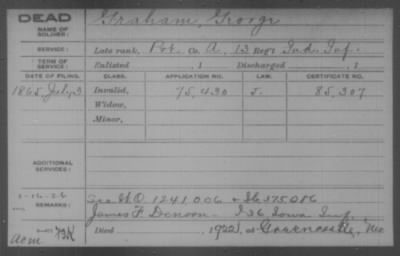 DEAD
NAME OF SOLDIER: Graham, George
SERVICE: Late rank, Pvt. Co. A, 13 Reg't Ind. Inf.
TERM OF SERVICE: Enlisted , 1 Discharged , 1
DATE OF FILING. CLASS. APPLICATION NO. LAW. CERTIFICATE NO.
1865 July 3 Invalid, 75,430 85,307
Widow,
Minor,
ADDITIONAL SERVICES:
REMARKS: W.O. 1241,006
James F I 36 Iowa Inf.
Died , 1922, at
acm